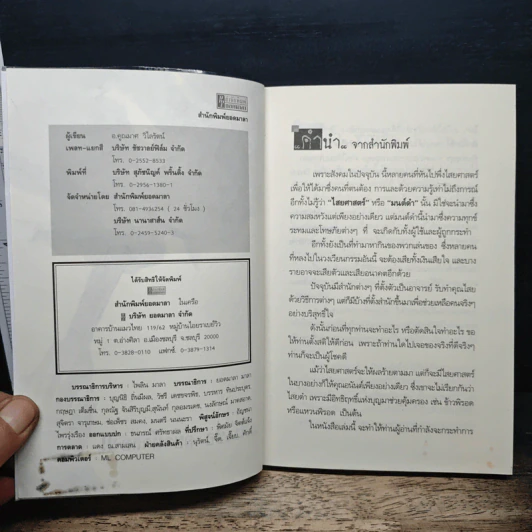 สำนักพิมพ์ยอดมาลา
ผู้เขียน อ.คุณมาศ วิไลรัตน์
เพลท-แยกสี บริษัท ชัชวาลย์ฟิล์ม จำกัด
โทร. 0-2552-8533
พิมพ์ที่ บริษัท สุภัชนิญค์ พริ้นติ้ง จำกัด
โทร. 0-2956-1380-1
จัดจำหน่ายโดย สำนักพิมพ์ยอดมาลา
โทร. 081-4934254 ( 24 ชั่วโมง )
บริษัท นานาสาส์น จำกัด
โทร. 0-2459-5240-3
ได้รับสิทธิให้จัดพิมพ์
สำนักพิมพ์ยอดมาลา ในเครือ
บริษัท ยอดมาลา จำกัด
อาคารบ้านแมวไทย 119/62 หมู่บ้านโอยราบรีวิว
หมู่ 1 ต.อ่างศิลา อ.เมืองชลบุรี จ.ชลบุรี 20000
โทร. 0-3828-0110 แฟกซ์. 0-3879-1314
บรรณาธิการบริหาร : ไพลิน มาลา บรรณาธิการ : ยอดมาลา มาลา
กองบรรณาธิการ :
ออกแบบปก : ที่ปรึกษา :
การตลาด : ฝ่ายคลังสินค้า :
คอมพิวเตอร์ : ML COMPUTER
คำนำ... จากสำนักพิมพ์
เพราะสังคมในปัจจุบัน นี้หลายคนที่หันไปพึ่งไสยศาสตร์
เพื่อให้ได้มาซึ่งคนที่ตนต้อง การและด้วยความรู้เท่าไม่ถึงการณ์
อีกทั้งไม่รู้ว่า "ไสยศาสตร์" หรือ "มนต์ดำ" นั้น มิใช่จะนำมาซึ่ง
ความสมหวังแต่เพียงอย่างเดียว แต่มนต์ดำนี้นำมาซึ่งความทุกข์
ระทมและโทษภัยต่างๆ ที่ จะเกิดกับทั้งผู้ใช้และผู้ถูกกระทำ
อีกทั้งยังเป็นที่ทำมาหากินของพวกเล่นของ ซึ่งหลายคน
ที่หลงไปในวงเวียนกรรมอันนี้ จะต้องเสียทั้งเงินเสียใจ และบาง
รายอาจจะเสียตัวและเสียอนาคตอีกด้วย
ปัจจุบันมีสำนักต่างๆ ที่ตั้งตัวเป็นอาจารย์ รับทำคุณไสย
ด้วยวิธีการต่างๆ แต่ก็มีบ้างที่ตั้งสำนักขึ้นมาเพื่อช่วยเหลือคนจริงๆ
อย่างบริสุทธิ์ใจ
ดังนั้นก่อนที่ทุกท่านจะทำอะไร หรือตัดสินใจทำอะไร ขอ
ให้ท่านตั้งสติให้ดีก่อน เพราะถ้าท่านใดไปเจอของจริงที่ดีจริงๆ
ท่านก็จะเป็นผู้โชคดี
แม้ว่าไสยศาสตร์จะให้ผลร้ายตามมา แต่ก็จะมีไสยศาสตร์
ในบางอย่างที่ให้คุณอนันต์เพียงอย่างเดียว ซึ่งเขาจะไม่เรียกกันว่า
ไสยดำ เพราะมีอิทธิฤทธิ์แห่งบุญมาช่วยคุ้มครอง เช่น ข้าวพิรอด
หรือแหวนพิรอด เป็นต้น
ในหนังสือเล่มนี้ จะทำให้ท่านผู้อ่านที่กำลังจะกระทำการ